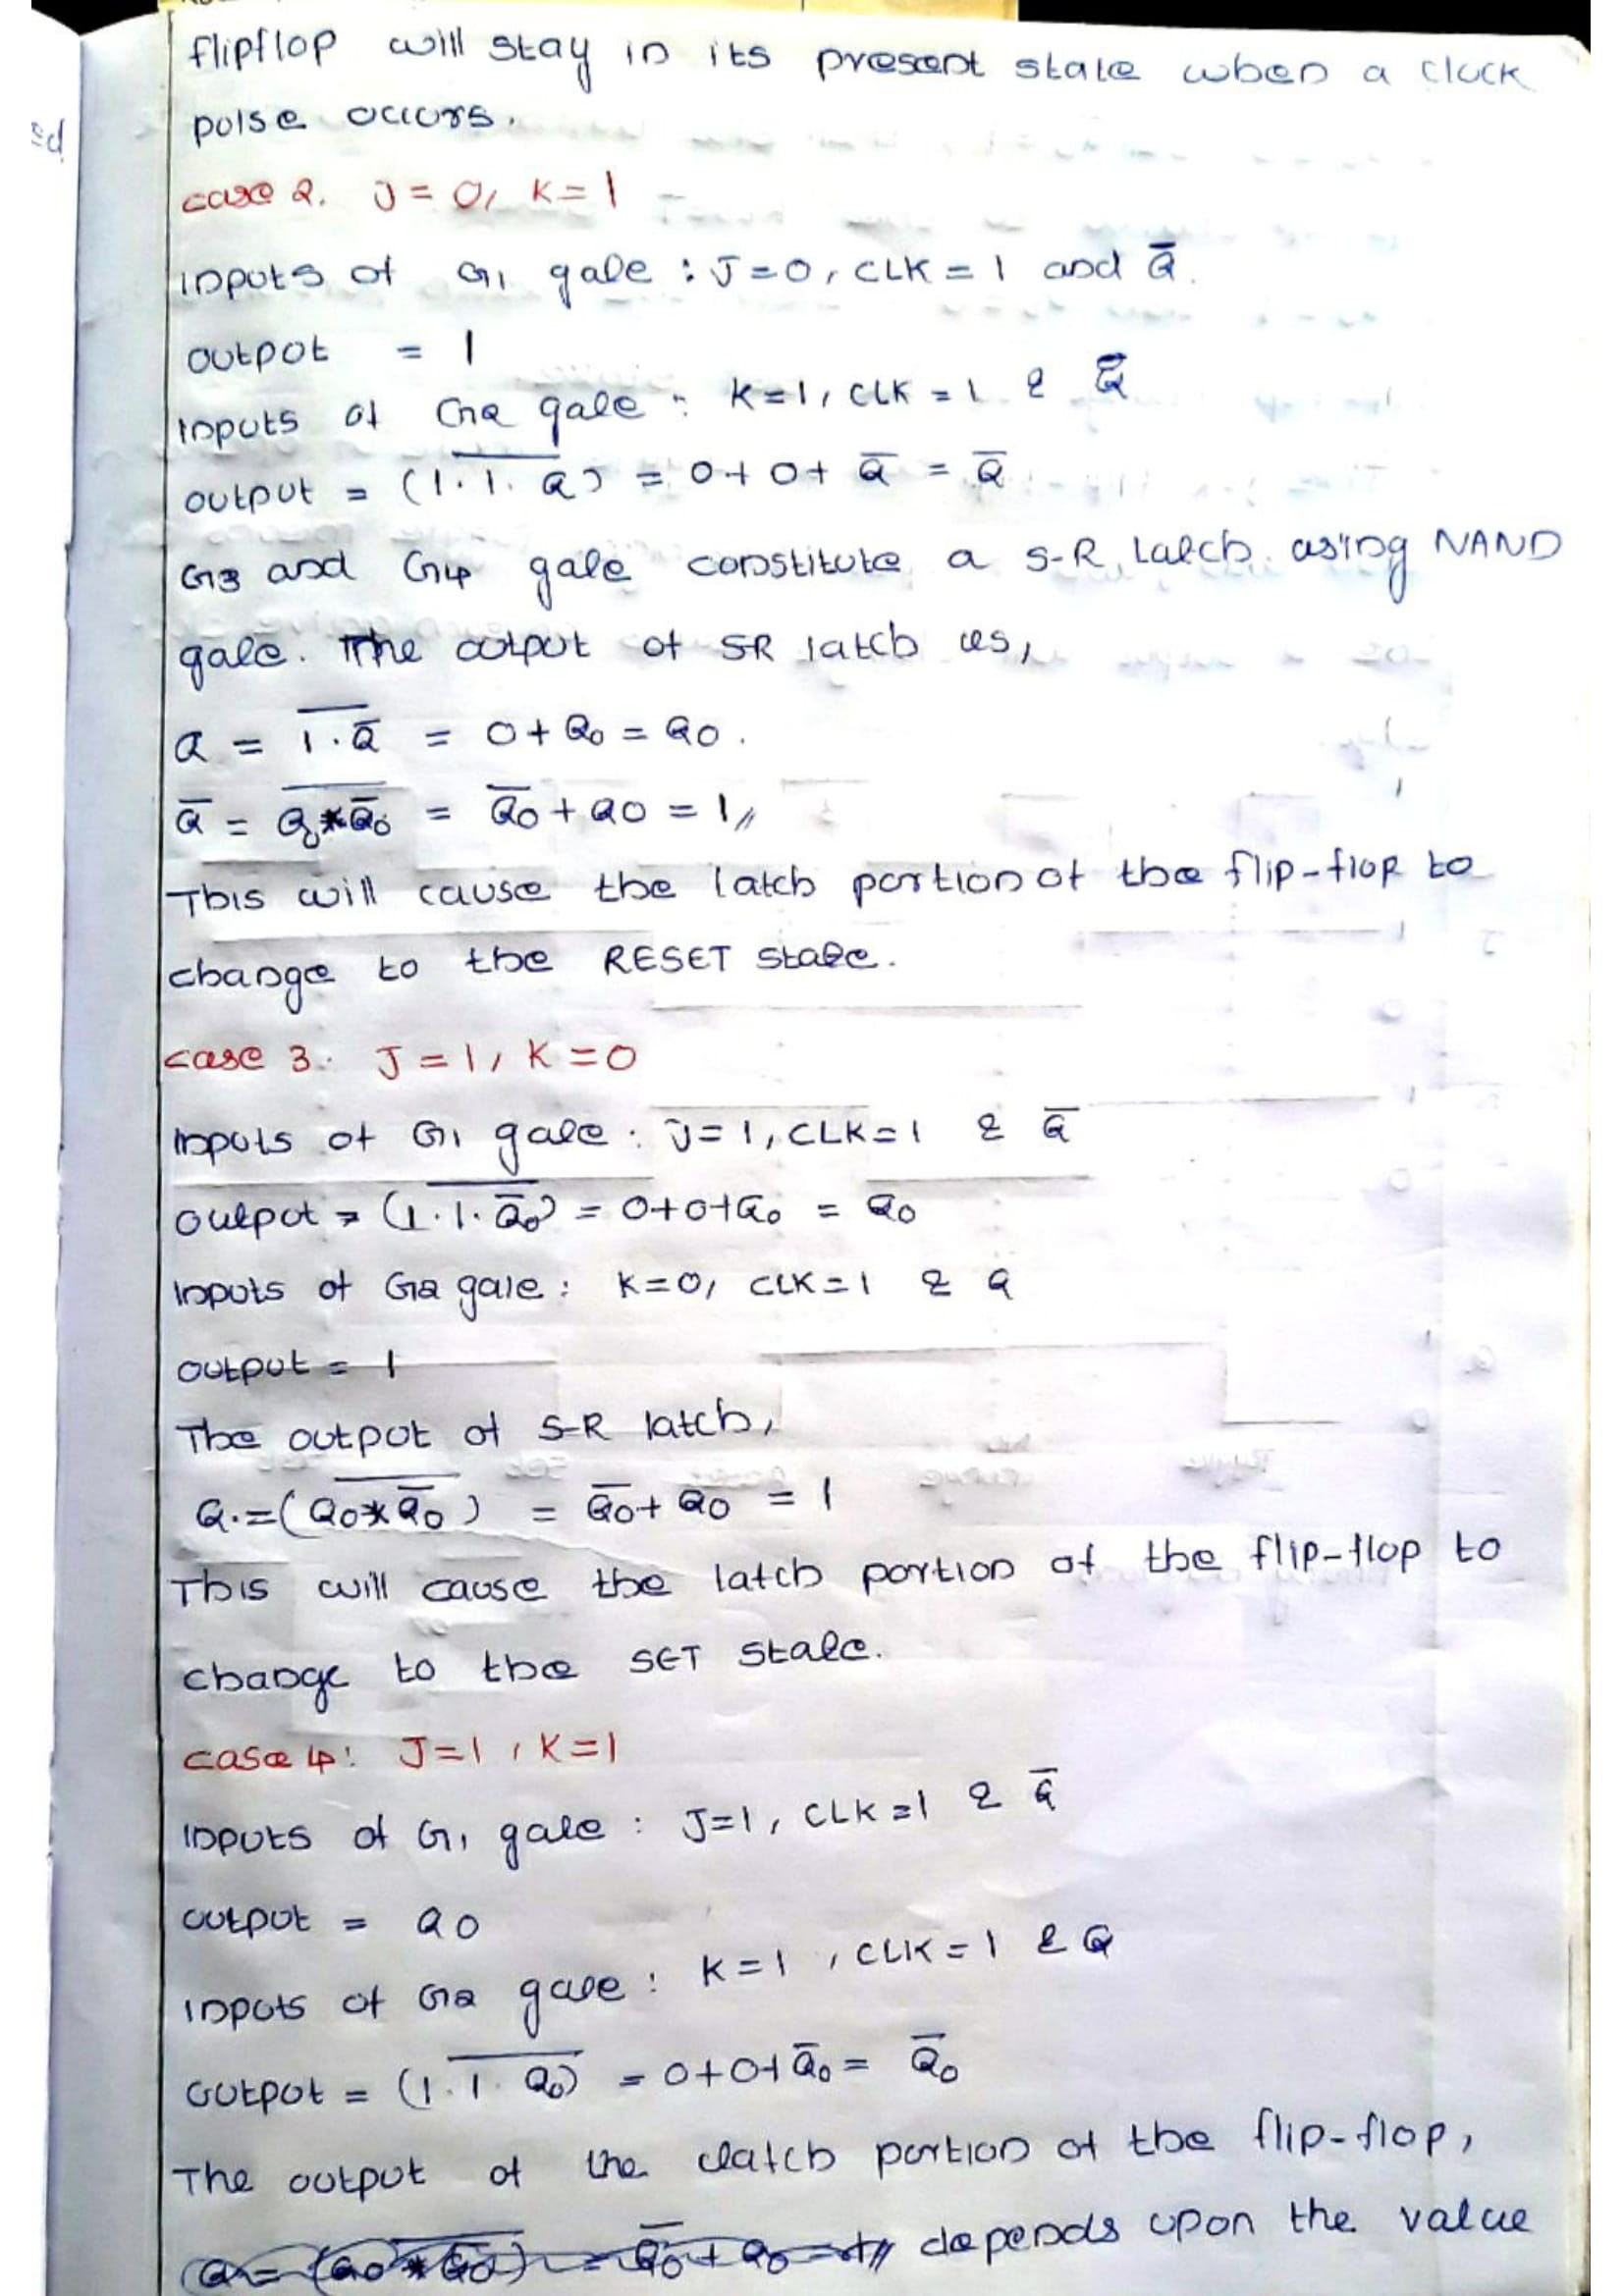 flipflop will stay in its present state when a clock
pulse occurs.
case 2. J = 0, K = 1
Inputs of G1 gate : J = 0, CLK = 1 and Q̅.
output = 1
Inputs of G2 gate : K = 1, CLK = 1 & Q̅
output = (1.1.Q)̅ = 0 + 0 + Q̅ = Q̅
G3 and G4 gate constitute a S-R latch using NAND
gate. The output of SR latch is,
Q = \overline{1 . Q̅} = 0 + Q0 = Q0.
Q̅ = \overline{Q0 * Q̅0} = Q̅0 + Q0 = 1 //
This will cause the latch portion of the flip-flop to
change to the RESET state.
case 3. J = 1, K = 0
Inputs of G1 gate : J = 1, CLK = 1 & Q̅
output = \overline{(1.1.Q̅0)} = 0+0+Q0 = Q0
Inputs of G2 gate : K = 0, CLK = 1 & Q
output = 1
The output of S-R latch,
Q. = \overline{(Q0 * Q̅0)} = Q̅0 + Q0 = 1
This will cause the latch portion of the flip-flop to
change to the SET state.
case 4: J = 1, K = 1
Inputs of G1 gate : J = 1, CLK = 1 & Q̅
output = Q0
Inputs of G2 gate : K = 1, CLK = 1 & Q
output = \overline{(1.1.Q0)} = 0 + 0 + Q̅0 = Q̅0
The output of the latch portion of the flip-flop,
depends upon the value